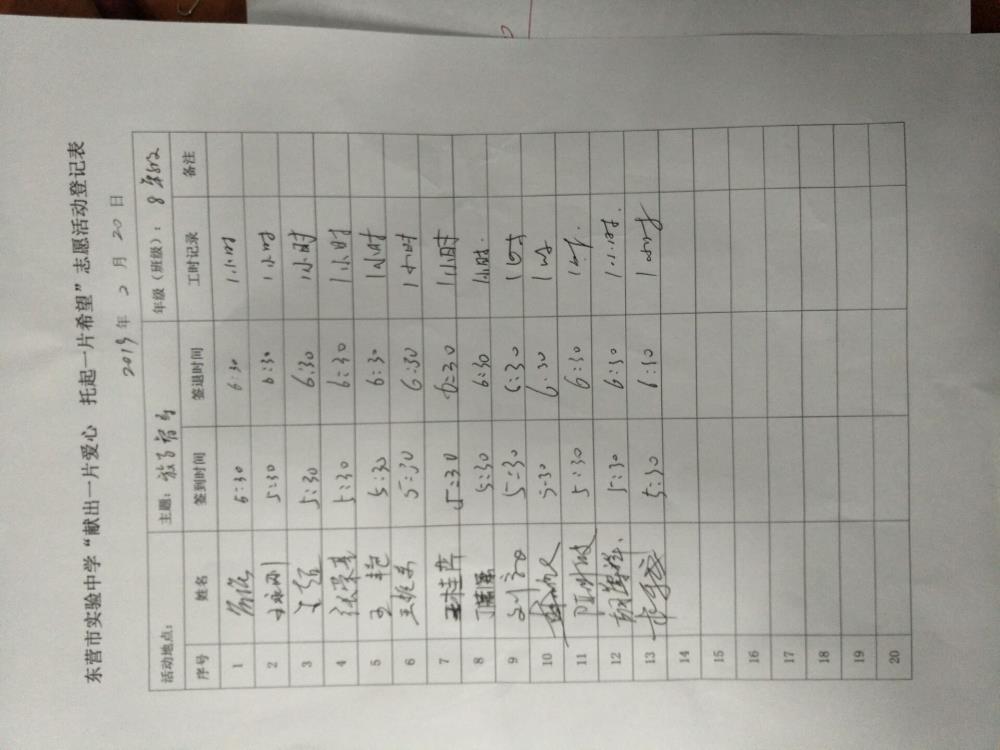 东营市实验中学“献出一片爱心 托起一片希望”志愿活动登记表
2019年 2 月 20 日
活动地点： 主题： 年级（班级）：8年级
序号 姓名 签到时间 签退时间 工时记录 备注
1 5:30 6:30 1小时
2 5:30 6:30 1小时
3 5:30 6:30 1小时
4 张荣春 5:30 6:30 1小时
5 王艳 5:30 6:30 1小时
6 5:30 6:30 1小时
7 王桂芹 5:30 6:30 1小时
8 5:30 6:30 1小时.
9 5:30 6:30 1小时
10 5:30 6:30 1小时
11 5:30 6:30 1小时.
12 5:30 6:30 1小时.
13 5:30 6:30 1小时
14
15
16
17
18
19
20